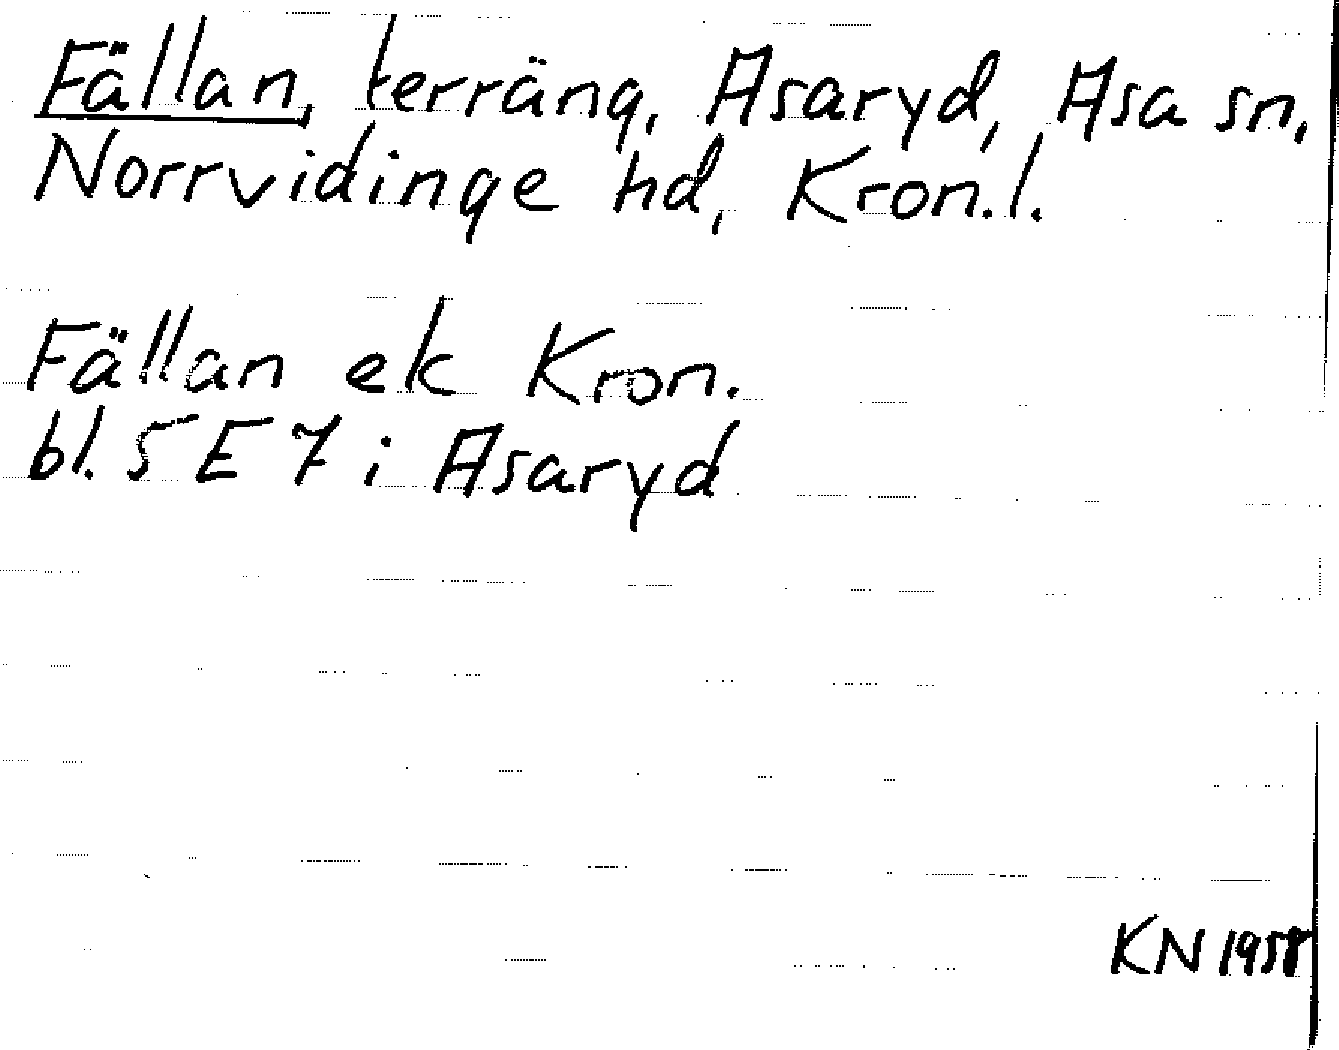 Fällan, terräng, Asaryd, Asa sn,
Norrvidinge hd, Kron.l.
Fällan ek Kron.
bl. 5 E 7 i Asaryd
KN 1958